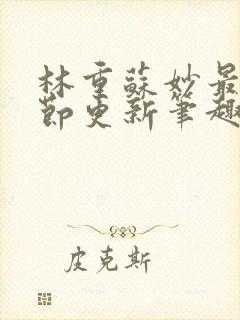 林重蘇妙最
節更新筆趣
皮克斯